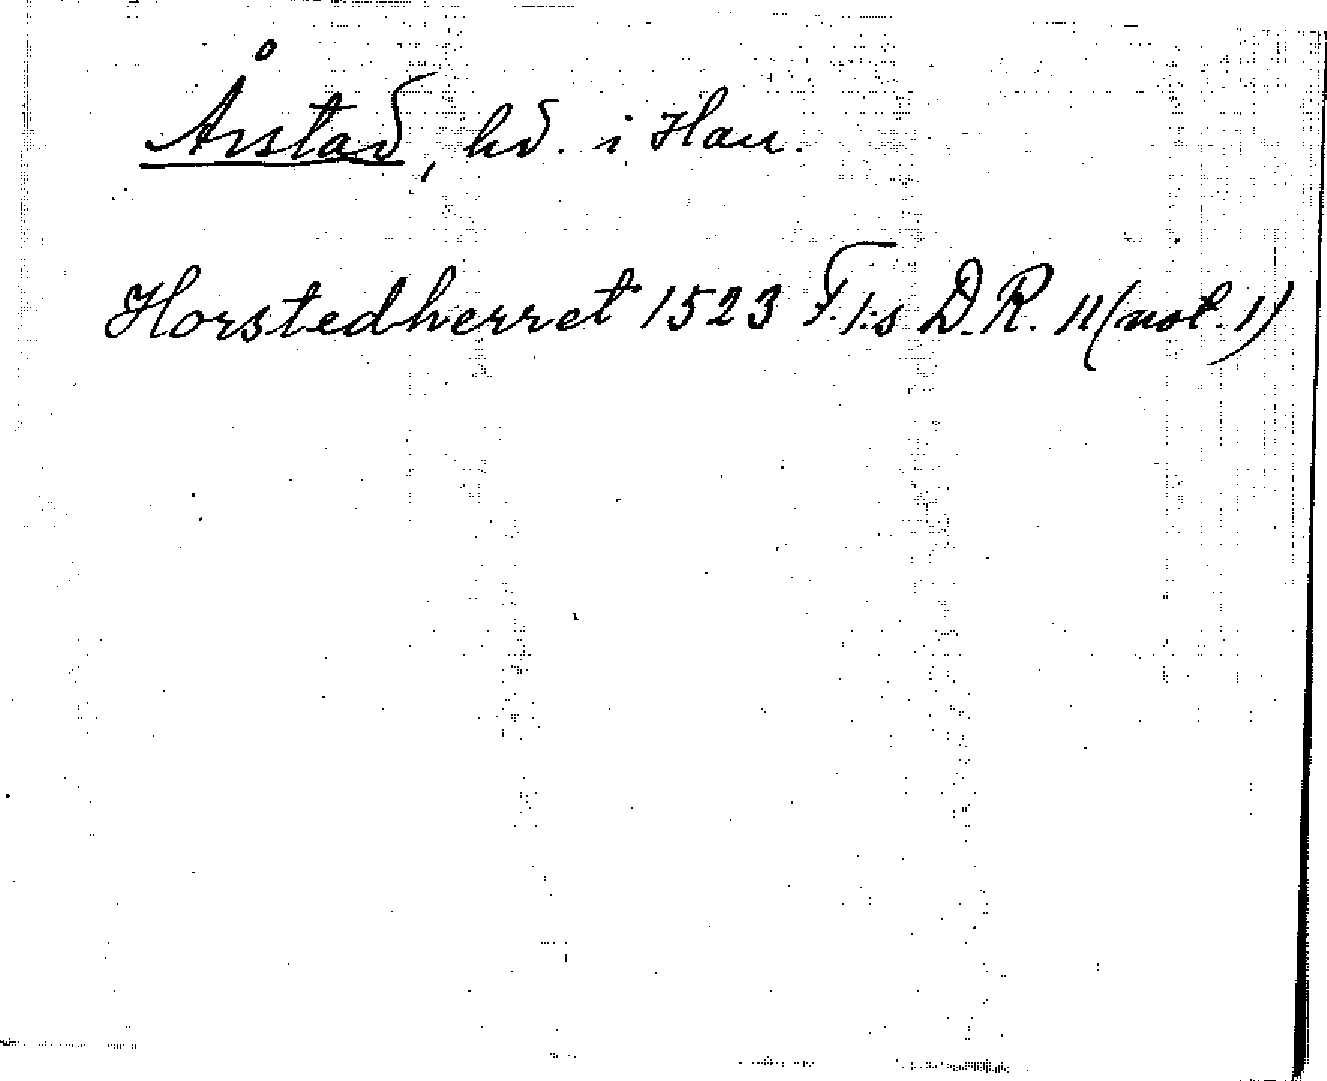 Årstad, hd. i Hau.
Horstedherret 1523 F.I:s D.R. 11 (not. 1)